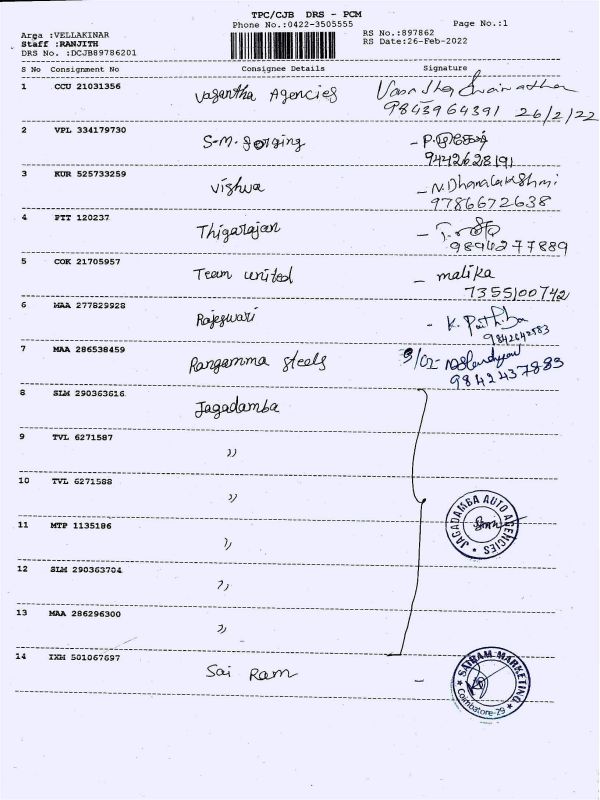 TPC/CJB DRS - PCM
Phone No.:0422-3505555
Page No.:1
Arga :VELLAKINAR
RS No.:897862
Staff :RANJITH
RS Date:26-Feb-2022
DRS No. :DCJB89786201
S No Consignment No Consignee Details Signature
1 CCU 21031356 Vasantha Agencies
9843964391 26/2/22
2 VPL 334179730 S-M. Forging
9442628191
3 KUR 525733259 Vishwa - N. Dhanalakshmi
9786672638
4 PTT 120237 Thigarajan
9894277889
5 COK 21705957 Team united - malika
7355100742
6 MAA 277829928 Rajeswari - K. Parthiba
9842642583
7 MAA 286538459 Rangamma steels
9842437883
8 SLM 290363616 Jagadamba
9 TVL 6271587 ))
10 TVL 6271588 ))
JAGADAMBA AUTO AGENCIES
11 MTP 1135186 ))
12 SLM 290363704 ))
13 MAA 286296300 ))
14 IXM 501067697 Sai Ram -
SAIRAM MARKETING
Coimbatore-29